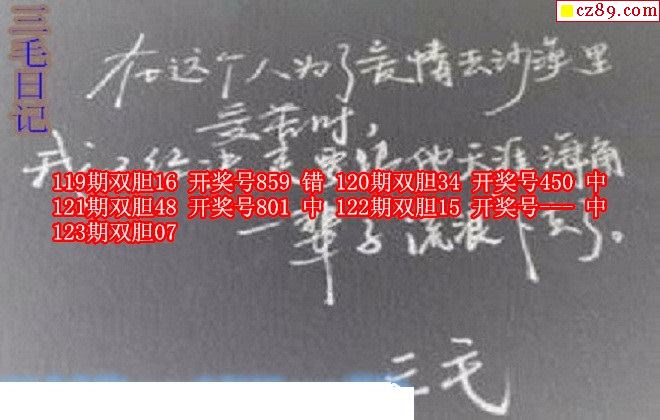 cz89.com
三毛日记
在这个人为了爱情去沙漠里
受苦时，
我已经决定要跟他天涯海角
119期双胆16 开奖号859 错 120期双胆34 开奖号450 中
121期双胆48 开奖号801 中 122期双胆15 开奖号--- 中
123期双胆07
一辈子流浪下去了。
三毛